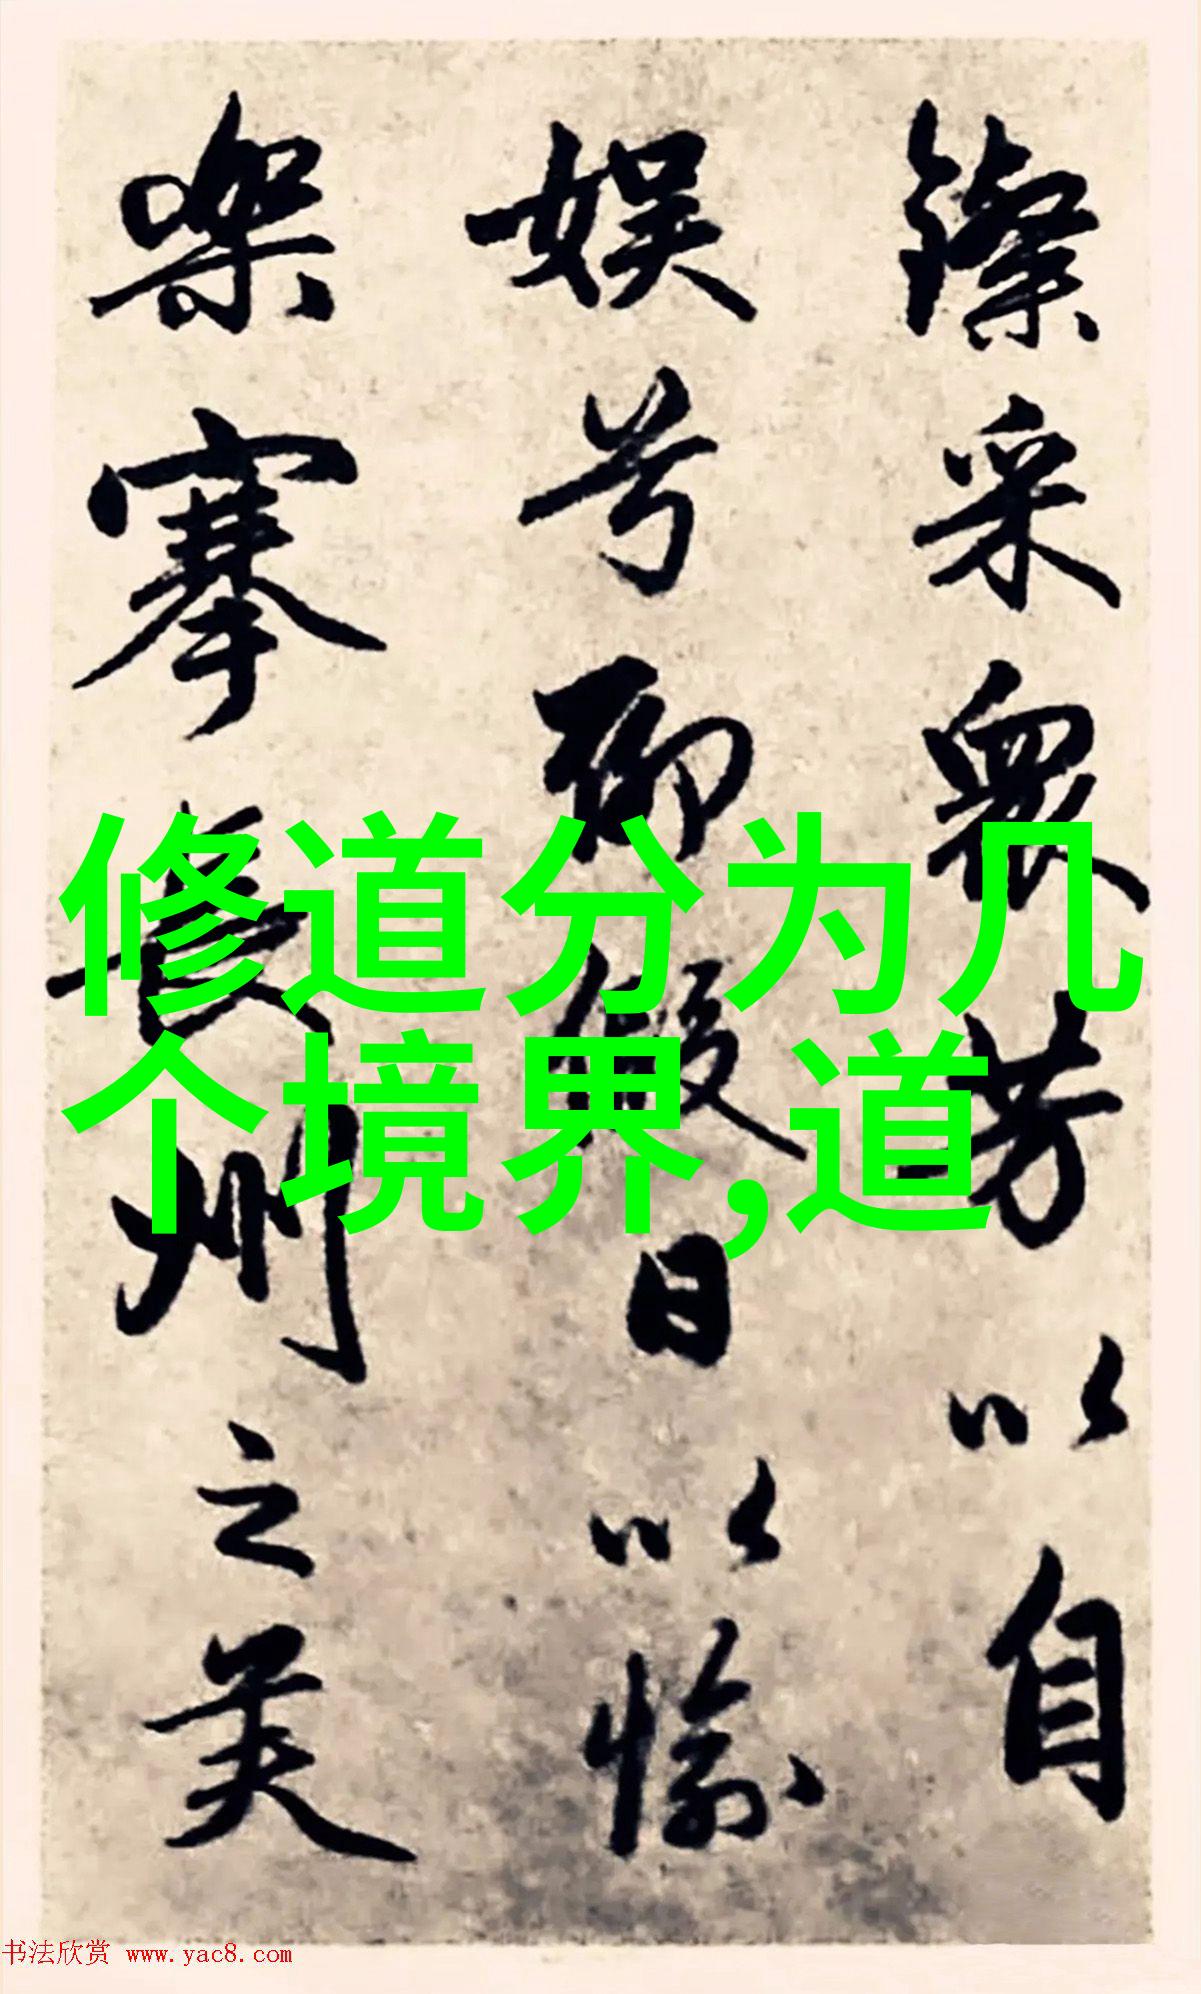 采衆芳以自
娱兮聊假日以愉
樂搴長州之芙
修道分为几
个境界,道
书法欣赏 www.yac8.com